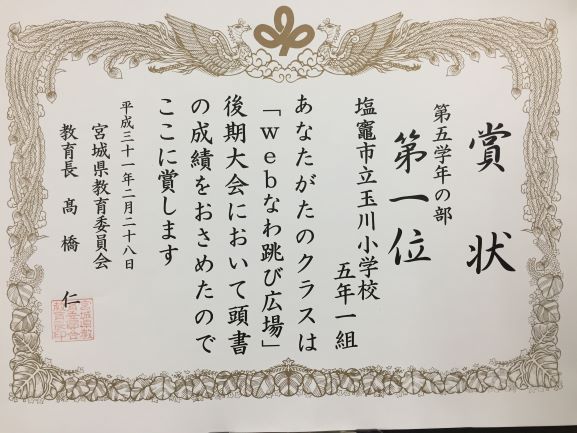 賞状
第五学年の部
第一位
塩竈市立玉川小学校
五年一組
あなたがたのクラスは
「webなわ跳び広場」
後期大会において頭書
の成績をおさめたので
ここに賞します
平成三十一年二月二十八日
宮城県教育委員会
教育長 髙橋 仁